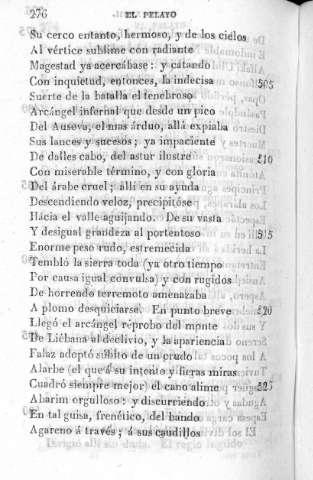 276 EL PELAYO
Su cerco entanto, hermoso, y de los cielos
Al vértice sublime con radiante
Magestad ya acercábase: y catando
Con inquietud, entonces, la indecisa 505
Suerte de la batalla el tenebroso
Arcángel infernal que desde un pico
Del Auseva, el mas árduo, allá expiaba
Sus lances y sucesos; ya impaciente
De dalles cabo, del astur ilustre 510
Con miserable término, y con gloria
Del árabe cruel; allí en su ayuda
Descendiendo veloz, precipitóse
Hácia el valle aguijando. De su vasta
Y desigual grandeza al portentoso 515
Enorme peso rudo, estremecida
Tembló la sierra toda (ya otro tiempo
Por causa igual convulsa) y con rugidos
De horrendo terremoto amenazaba
A plomo desquiciarse. En punto breve 520
Llegó el arcángel réprobo del monte
De Liébana al declivio, y la apariencia
Falaz adoptó súbito de un crudo
Alarbe (el que á su intento y fieras miras
Cuadró siempre mejor) el cano alime 525
Abarim orgulloso: y discurriendo
En tal guisa, frenético, del bando
Agareno á través; á sus caudillos